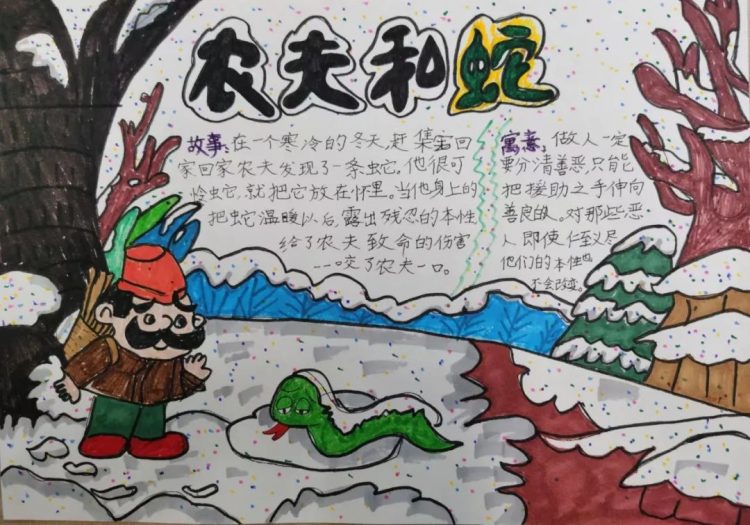 农夫和蛇
故事:在一个寒冷的冬天,赶集回
家回家农夫发现了一条蛇。他很可
怜蛇,就把它放在怀里。当他身上的
把蛇温暖以后,露出残忍的本性
给了农夫致命的伤害
——咬了农夫一口。
寓意:做人一定
要分清善恶,只能
把援助之手伸向
善良的人。对那些恶
人即使仁至义尽
他们的本性也
不会改变。